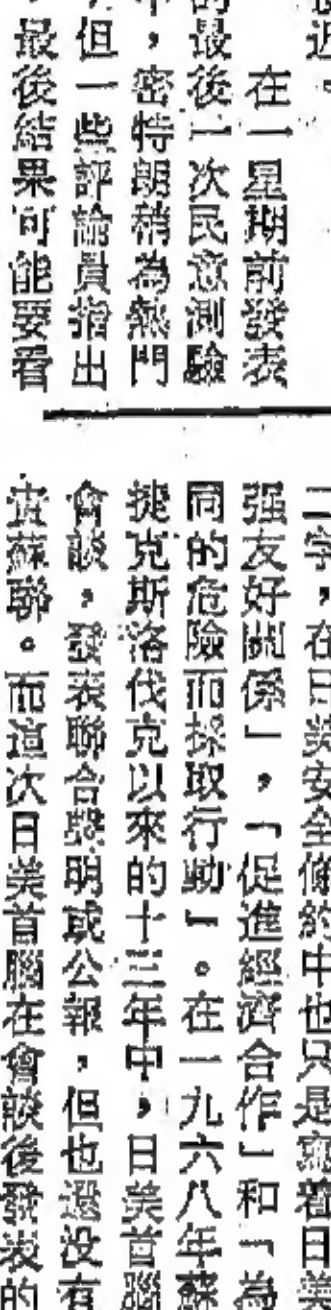 近。
在一星期前發表
的最後一次民意測驗
中，密特朗稍為熱門
，但一些評論員指出
，最後結果可能要看
二字，在日美安全條約中也只是寫着日美
强友好關係」，「促進經濟合作」和「為
同的危險而採取行動」。在一九六八年蘇
捷克斯洛伐克以來的十三年中，日美首腦
會談，發表聯合聲明或公報，但也還没有
責蘇聯。而這次日美首腦在會談後發表的